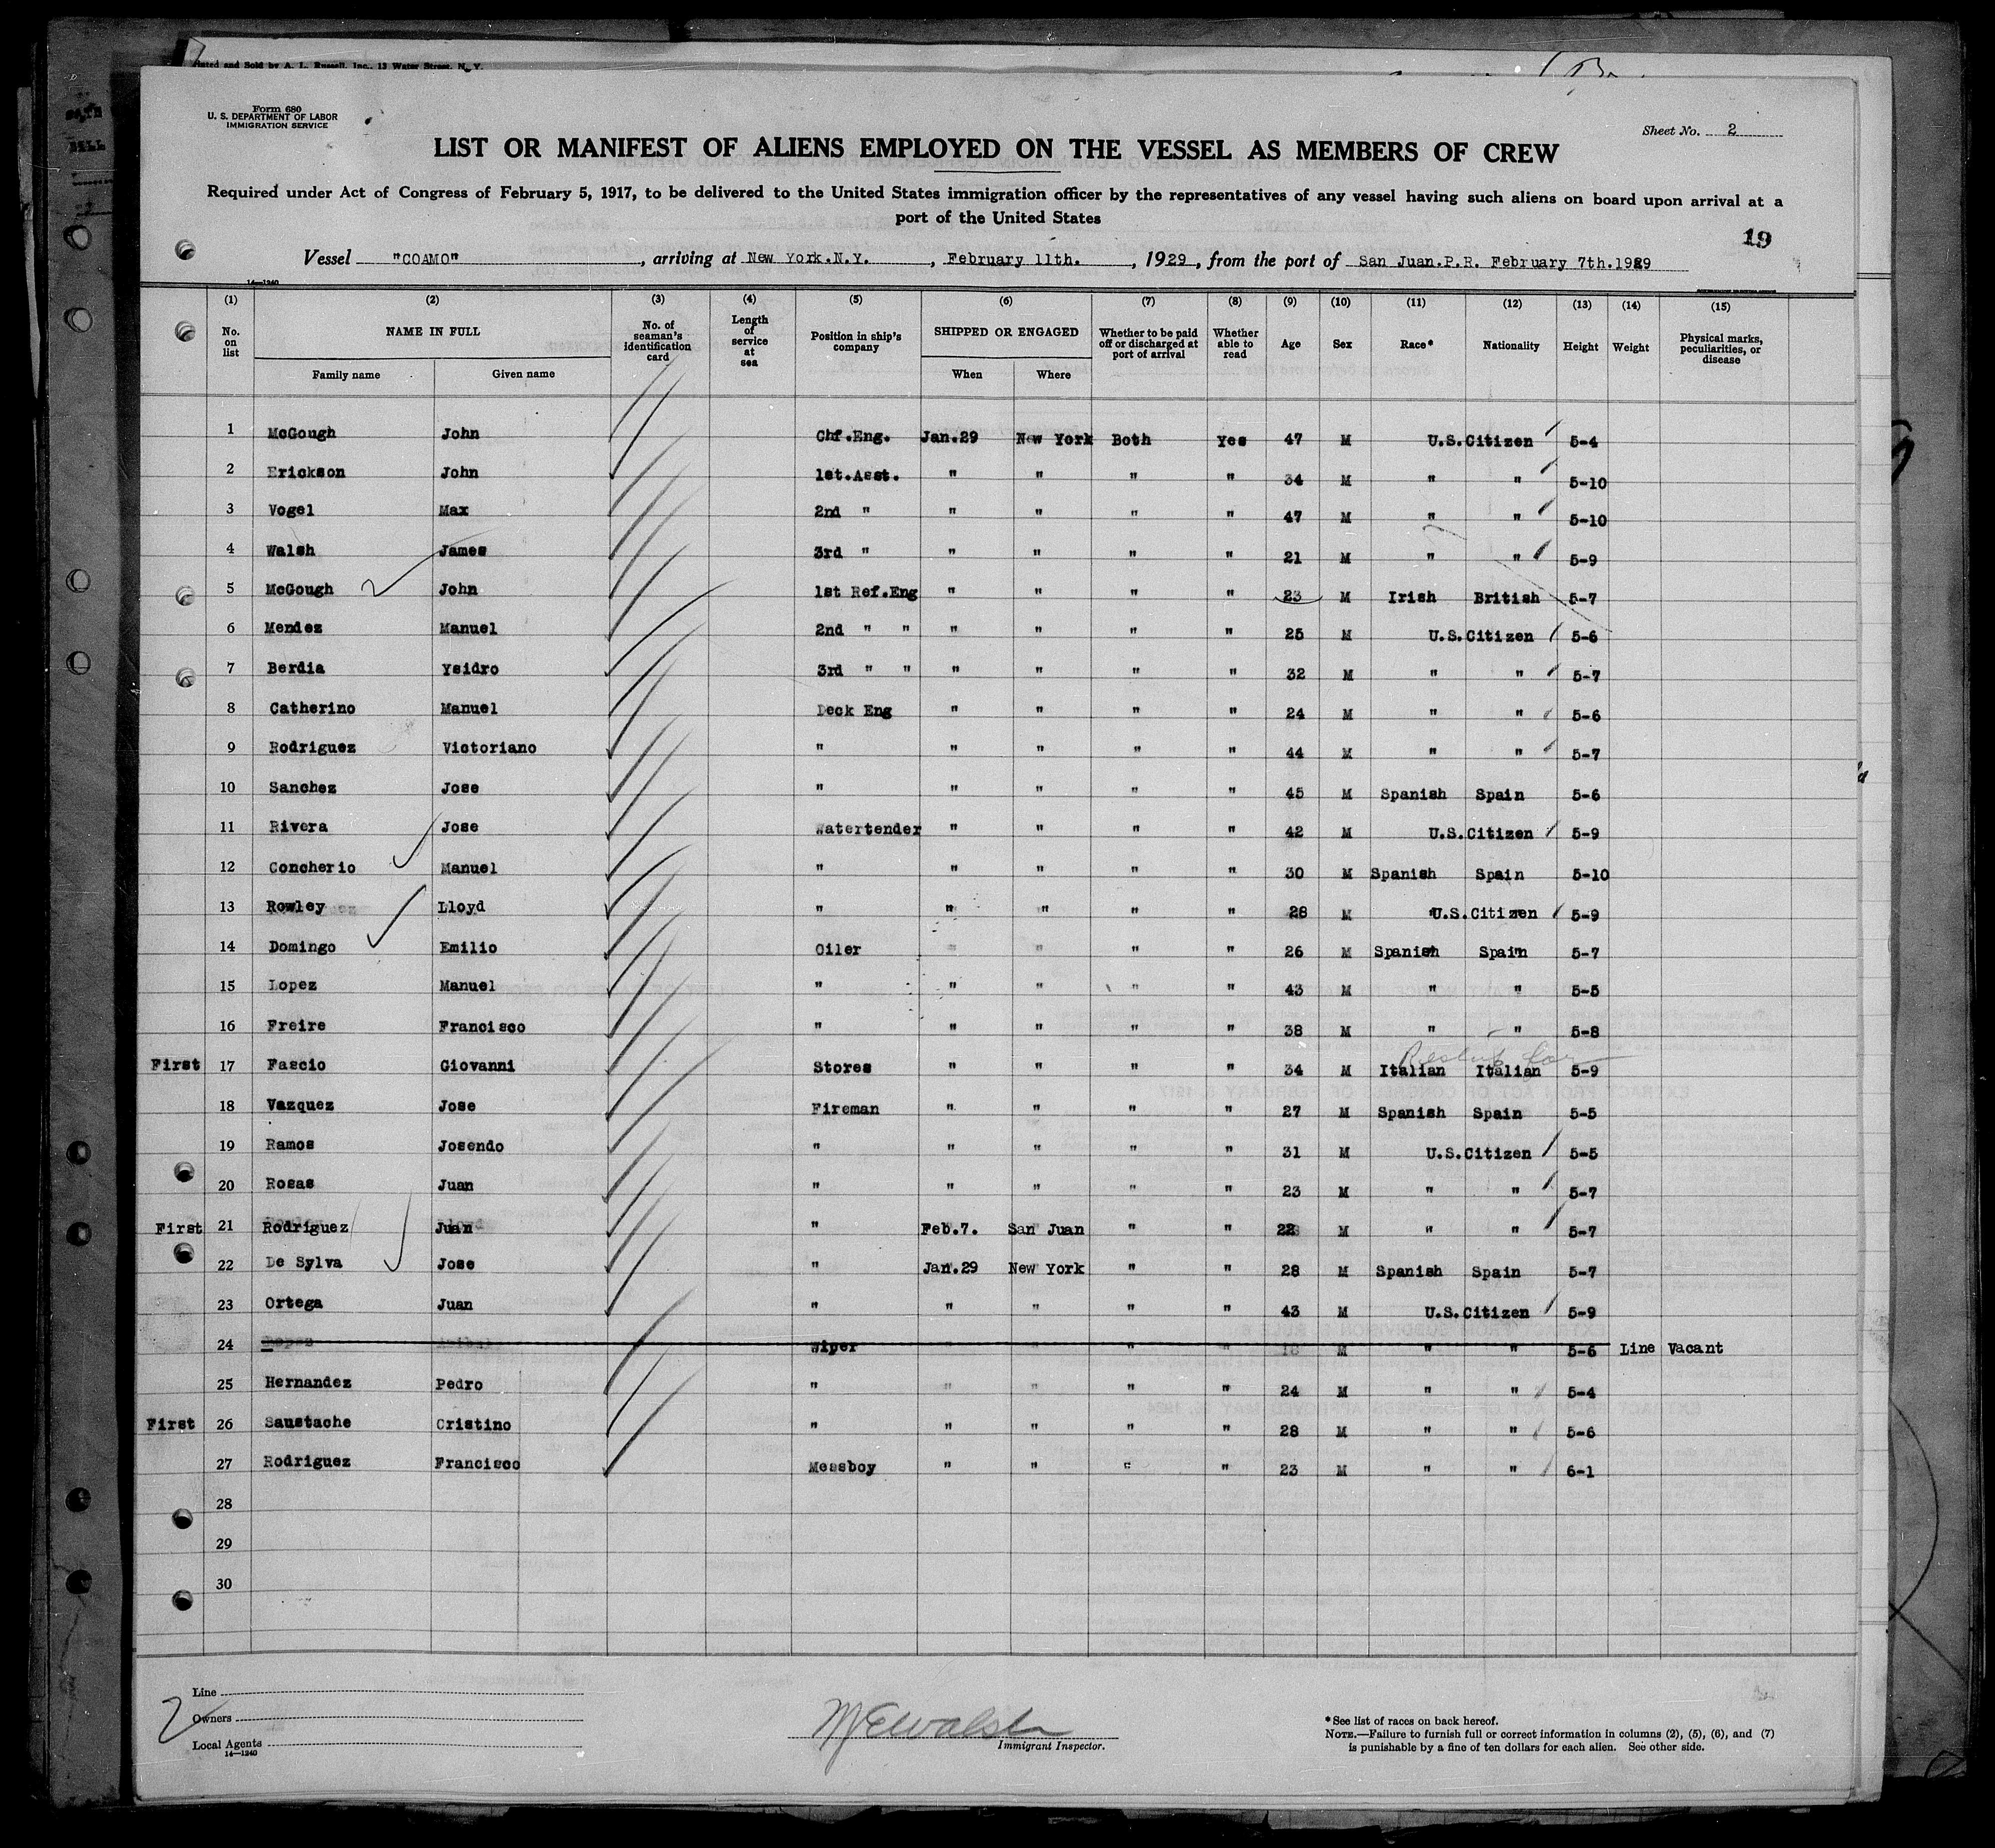 Printed and Sold by A. L. Russell, Inc., 13 Water Street, N. Y.
Form 680
U. S. DEPARTMENT OF LABOR
IMMIGRATION SERVICE
Sheet No. 2
LIST OR MANIFEST OF ALIENS EMPLOYED ON THE VESSEL AS MEMBERS OF CREW
Required under Act of Congress of February 5, 1917, to be delivered to the United States immigration officer by the representatives of any vessel having such aliens on board upon arrival at a
port of the United States
19
Vessel "COAMO" , arriving at New York.N.Y. , February 11th. , 1929 , from the port of San Juan.P.R. February 7th.1929
14—1240
(1) (2) (3) (4) (5) (6) (7) (8) (9) (10) (11) (12) (13) (14) (15)
No. on list NAME IN FULL No. of seaman's identification card Length of service at sea Position in ship's company SHIPPED OR ENGAGED Whether to be paid off or discharged at port of arrival Whether able to read Age Sex Race* Nationality Height Weight Physical marks, peculiarities, or disease
Family name Given name When Where
1 McGough John Chf.Eng. Jan.29 New York Both Yes 47 M U.S.Citizen 5-4
2 Erickson John 1st.Asst. " " " " 34 M " " 5-10
3 Vogel Max 2nd " " " " " 47 M " " 5-10
4 Walsh James 3rd " " " " " 21 M " " 5-9
5 McGough John 1st Ref.Eng " " " " 23 M Irish British 5-7
6 Mendez Manuel 2nd " " " " " " 25 M U.S.Citizen 5-6
7 Berdia Ysidro 3rd " " " " " " 32 M " " 5-7
8 Catherino Manuel Deck Eng " " " " 24 M " " 5-6
9 Rodriguez Victoriano " " " " " 44 M " " 5-7
10 Sanchez Jose " " " " " 45 M Spanish Spain 5-6
11 Rivera Jose Watertender " " " " 42 M U.S.Citizen 5-9
12 Concherio Manuel " " " " " 30 M Spanish Spain 5-10
13 Rowley Lloyd " " " " " 28 M U.S.Citizen 5-9
14 Domingo Emilio Oiler " " " " 26 M Spanish Spain 5-7
15 Lopez Manuel " " " " " 43 M " " 5-5
16 Freire Francisco " " " " " 38 M " " 5-8
First 17 Fascio Giovanni Stores " " " " 34 M Italian Italian 5-9
18 Vazquez Jose Fireman " " " " 27 M Spanish Spain 5-5
19 Ramos Josendo " " " " " 31 M U.S.Citizen 5-5
20 Rosas Juan " " " " " 23 M " " 5-7
First 21 Rodriguez Juan " Feb.7. San Juan " " 22 M " " 5-7
22 De Sylva Jose " Jan.29 New York " " 28 M Spanish Spain 5-7
23 Ortega Juan " " " " " 43 M U.S.Citizen 5-9
24 Wiper " " " " 18 M " " 5-6 Line Vacant
25 Hernandez Pedro " " " " " 24 M " " 5-4
First 26 Saustache Cristino " " " " " 28 M " " 5-6
27 Rodriguez Francisco Messboy " " " " 23 M " " 6-1
28
29
30
Line
Owners
Local Agents
14—1240
M E Walsh
Immigrant Inspector.
*See list of races on back hereof.
NOTE.—Failure to furnish full or correct information in columns (2), (5), (6), and (7)
is punishable by a fine of ten dollars for each alien. See other side.